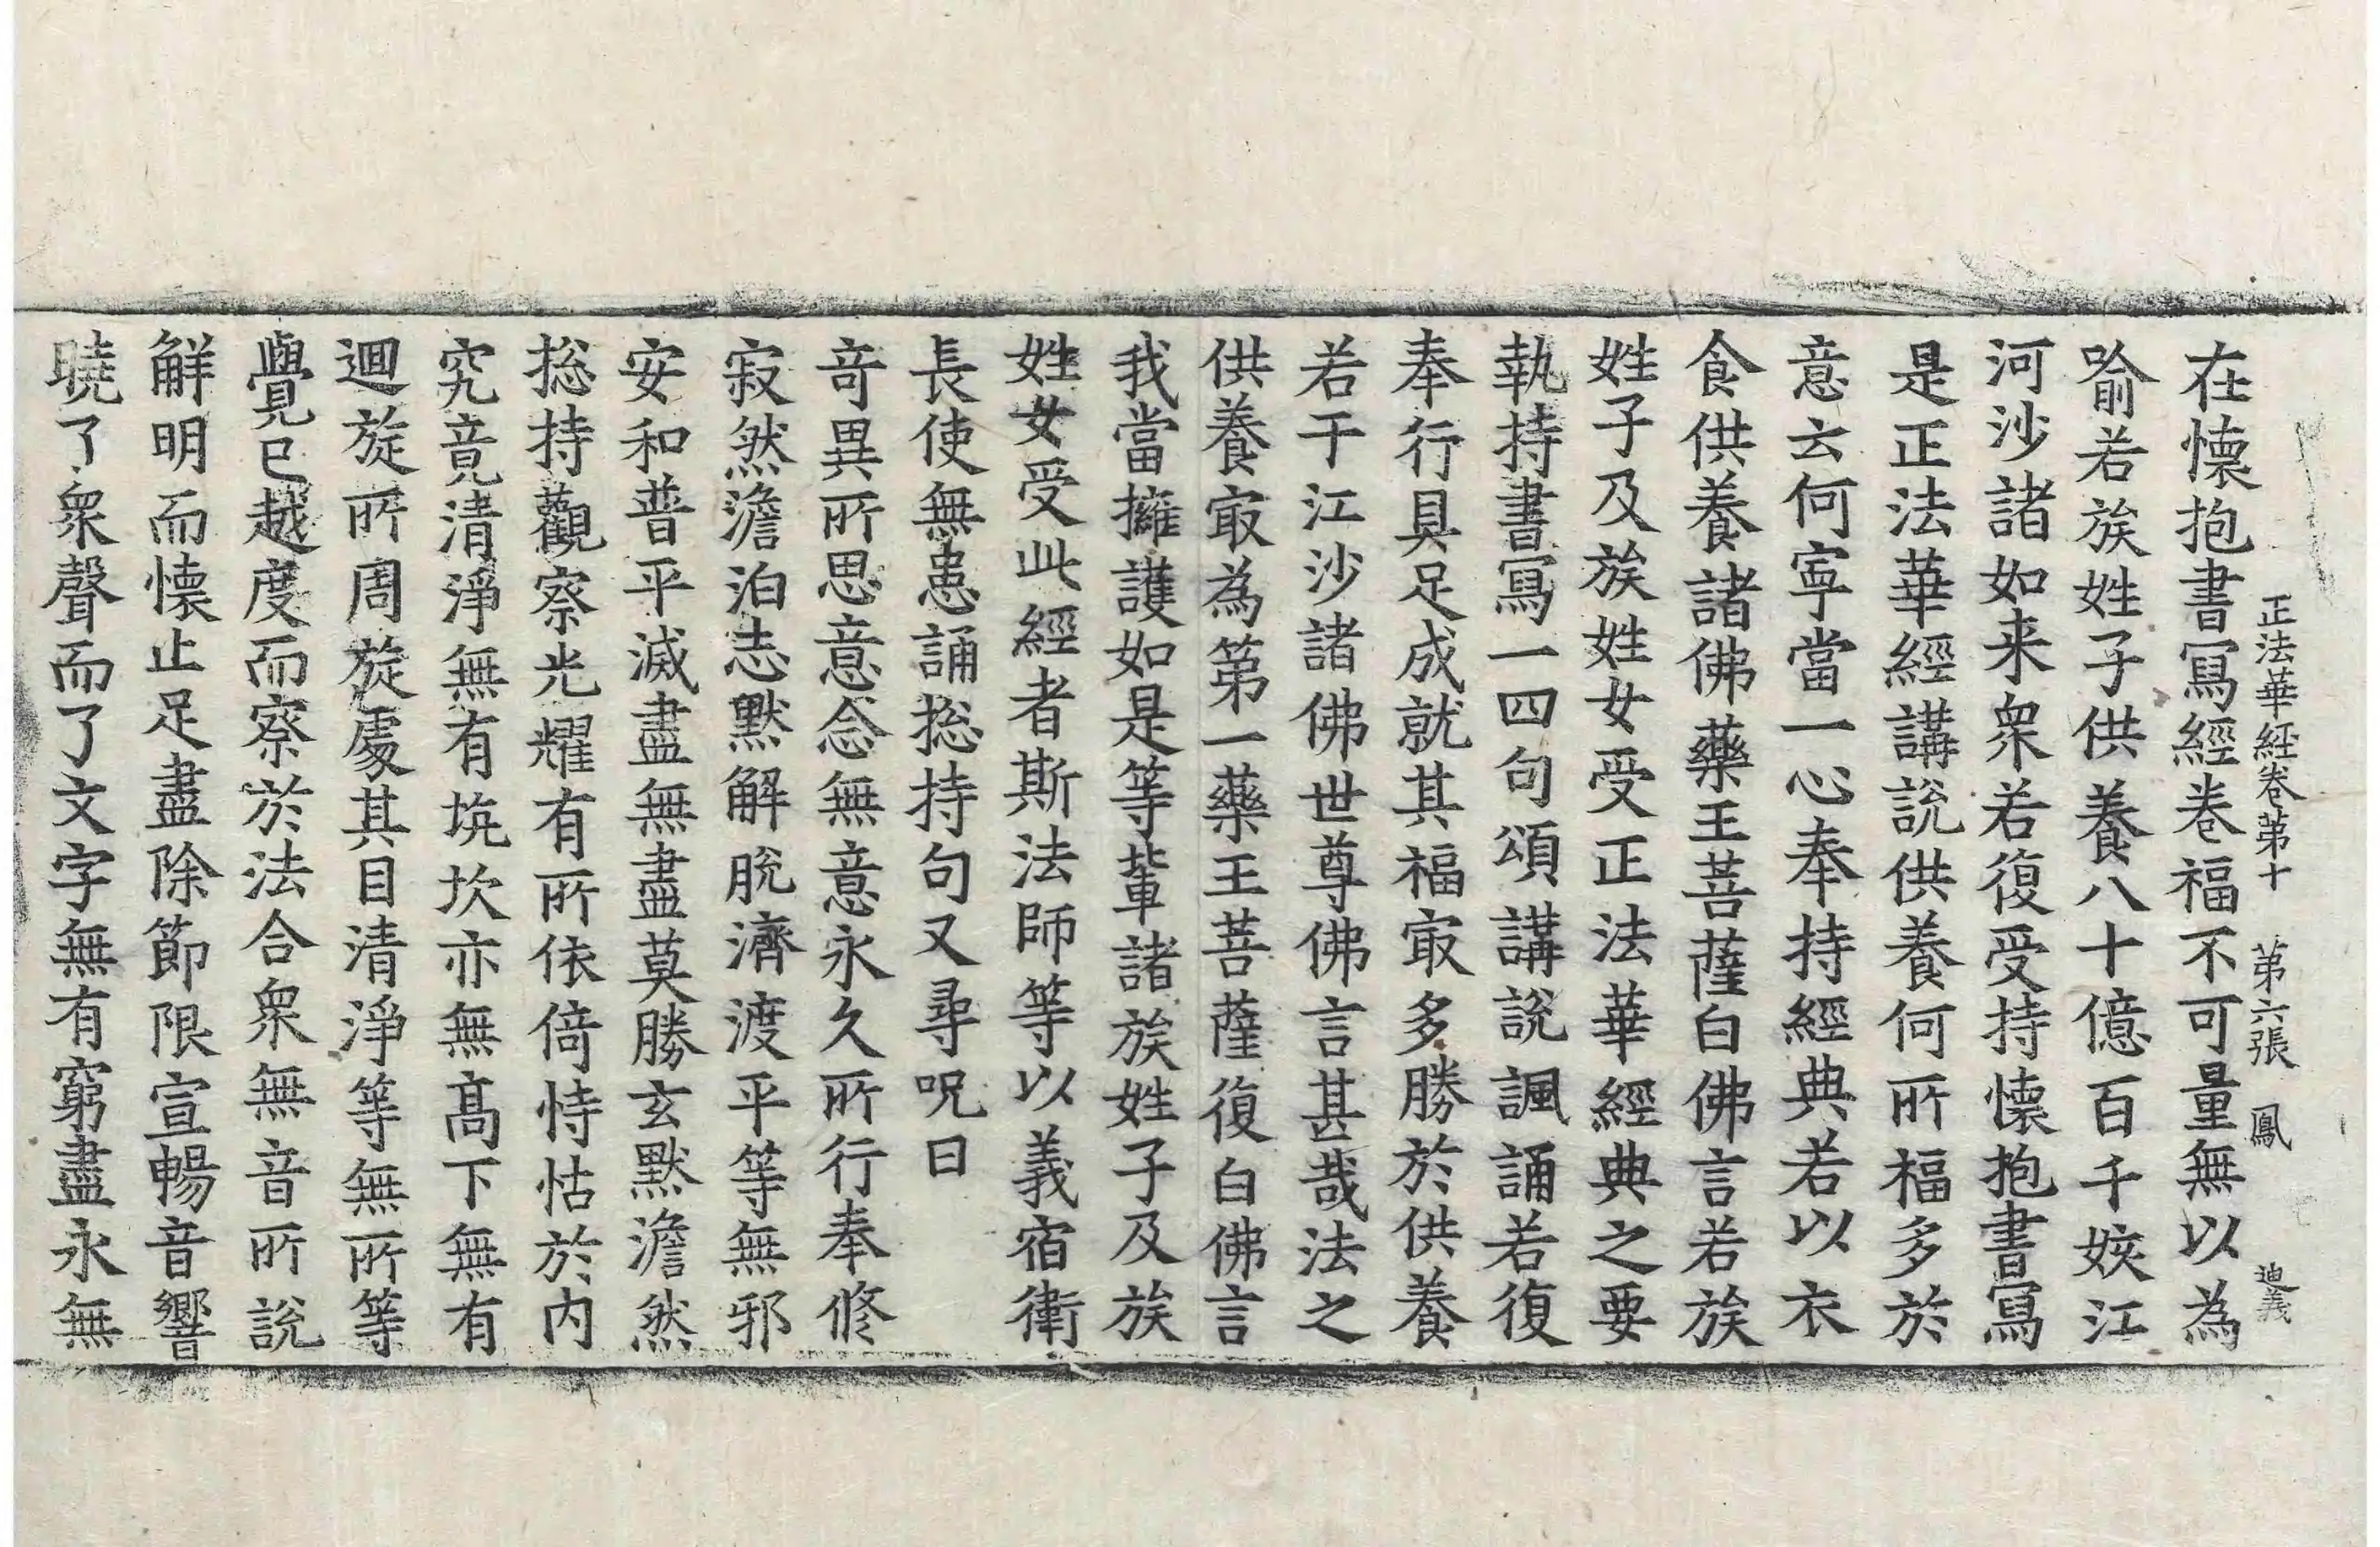 正法華経卷苐十　苐六張　鳳　迪義
在懷抱書寫經卷福不可量無以為
喻若族姓子供養八十億百千姟江
河沙諸如来衆若復受持懷抱書寫
是正法華經講說供養何所福多於
意云何寧當一心奉持經典若以衣
食供養諸佛藥王菩薩白佛言若族
姓子及族姓女受正法華經典之要
執持書寫一四句頌講說諷誦若復
奉行具足成就其福㝡多勝於供養
若干江沙諸佛世尊佛言甚哉法之
供養㝡為第一藥王菩薩復白佛言
我當擁護如是等輩諸族姓子及族
姓女受此經者斯法師等以義宿衛
長使無患誦捴持句又尋呪曰
奇異所思意念無意永久所行奉修
寂然澹泊志默解脫濟渡平等無邪
安和普平滅盡無盡莫勝玄默澹然
捴持觀察光耀有所依倚恃怙於內
究竟清淨無有坑坎亦無髙下無有
迴旋所周旋處其目清淨等無所等
覺已越度而察於法合衆無音所說
解明而懷止足盡除節限宣暢音響
曉了衆聲而了文字無有窮盡永無